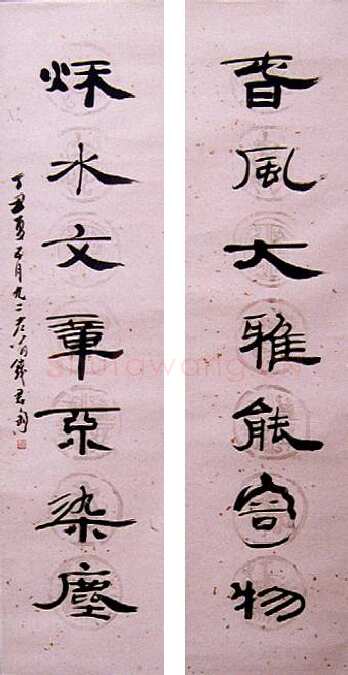 春風大雅能容物
秋水文章不染塵
丁丑夏五月九二老人錢君匋